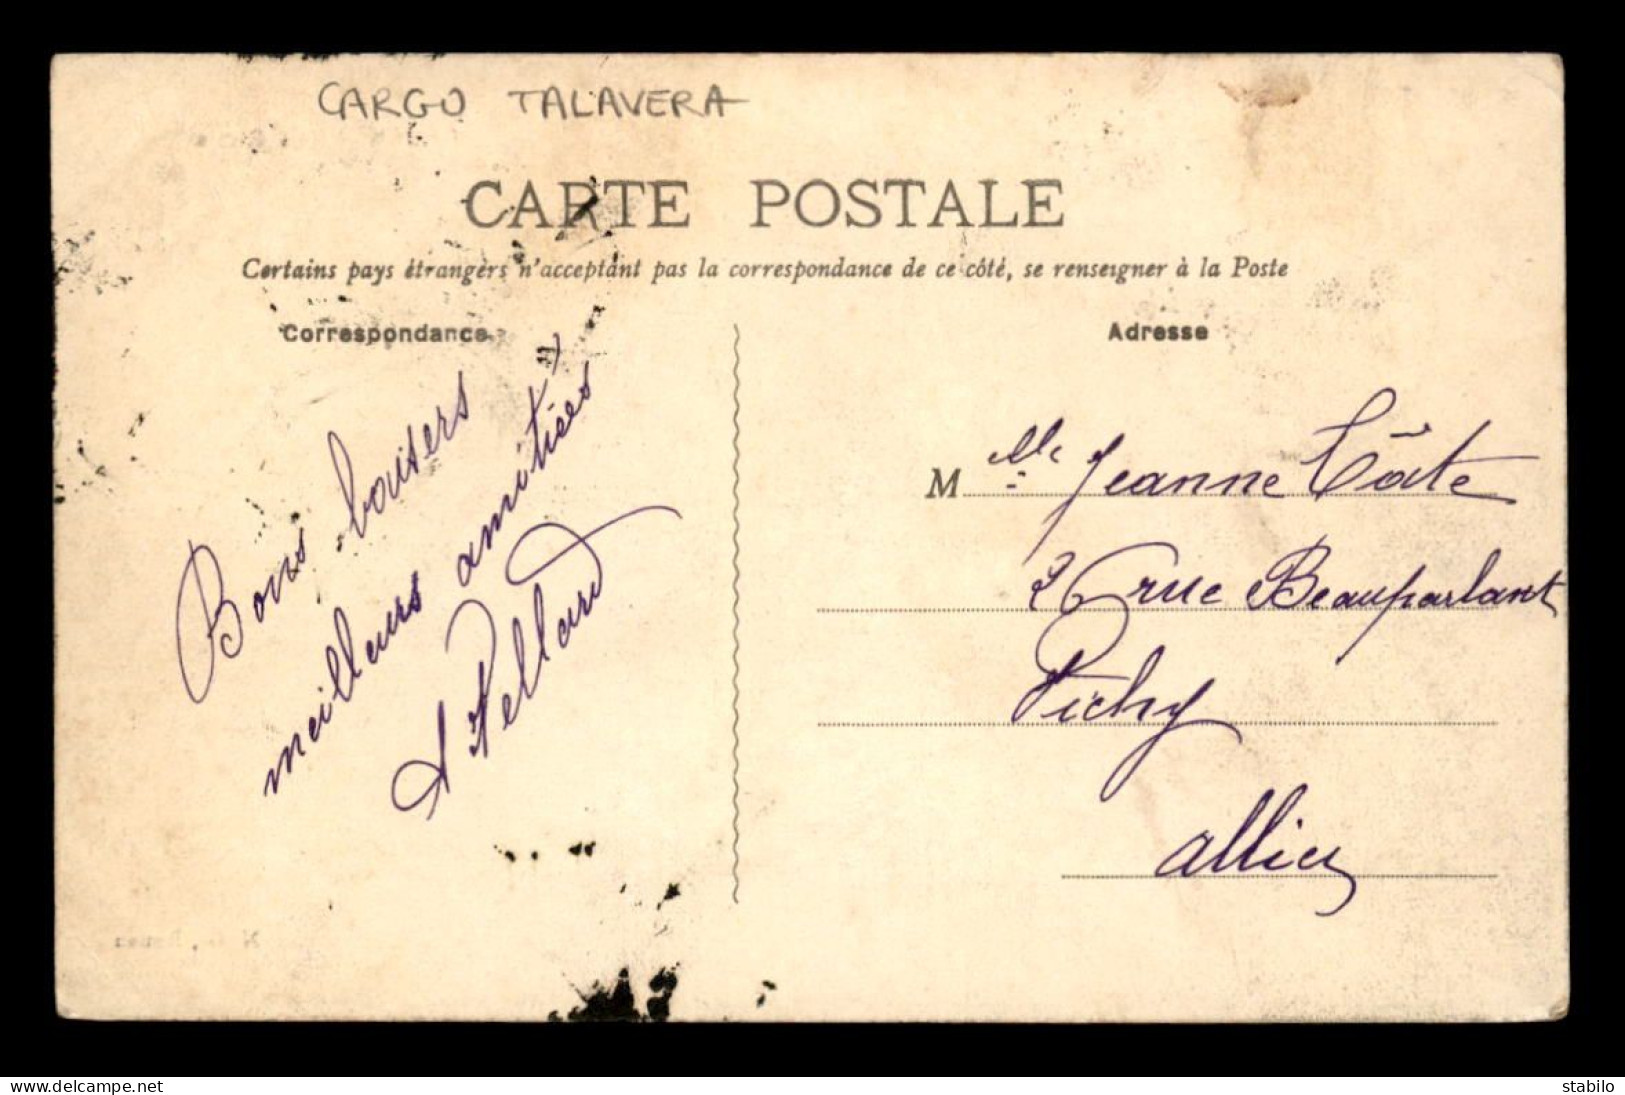 CARGO TALAVERA
CARTE POSTALE
Certains pays étrangers n'acceptant pas la correspondance de ce côté, se renseigner à la Poste
Correspondance
Adresse
Bons baisers
meilleurs amitiées
M elle Jeanne Côte
26 rue Beauparlant
Vichy
Allier
www.delcampe.net
stabilo